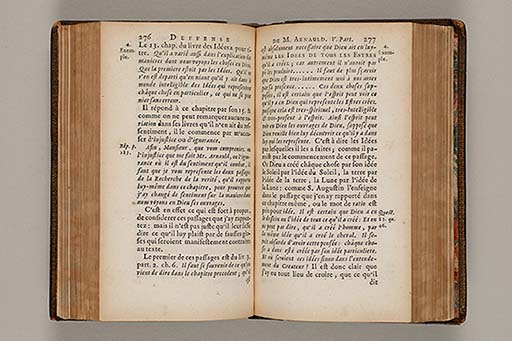 276 DEFFENSE
4. Exem-
ple.
Le 13. chap. du livre des Idées a pour ti-
tre. Qu'il a varié aussi dans l'explication des
manieres dont nous voyons les choses en Dieu.
Que la premiere estoit par les Idées. Qu'il ne
s'en est departi qu'en niant qu'il y ait dans le
monde intelligible des Idées qui representent
chaque chose en particulier, ce qui ne se peut
nier sans erreur.
Il répond à ce chapitre par son 15. &
comme on ne peut remarquer aucune va-
riation dans ses livres qu'il n'en ait du res-
sentiment, il le commence par m'accu-
ser d'injustice ou d'ignorance.
Rép. p.
183.
Afin, Monsieur, que vous compreniez, ou
l'injustice que me fait Mr. Arnauld, ou l'igno-
rance où il est du sentiment qu'il combat, il
faut que je vous represente les deux passages
de la Recherche de la verité, qu'il rapporte
luy-même dans ce chapitre, pour prouver que
j'ay changé de sentiment sur la maniere dont
nous voyons en Dieu ses ouvrages.
C'est en effet ce qui est fort à propos,
de considerer ces passages que j'ay rappor-
tez: mais il n'est pas juste qu'il leur fasse
dire ce qu'il luy plaist par de fausses glo-
ses qui seroient manifestement contraires
au texte.
Le premier de ces passages est du liv. 3.
part. 2. ch. 6. Il faut se souvenir de ce qu'on
vient de dire dans le chapitre precedent; qu'il
est
DE M. ARNAULD. V. Part. 277
4. Exem-
ple.
est absolument necessaire que Dieu ait en luy-
même LES IDÉES DE TOUS LES ESTRES
qu'il a créez; car autrement il n'auroit pas
pû les produire...... Il faut de plus sçavoir
que Dieu est tres-intimement uni à nos ames
par sa presence...... Ces deux choses sup-
posées, il est certain que l'esprit peut voir ce
qu'il y a en Dieu qui represente les Estres créez,
puisque cela est tres-spirituel, tres-intelligible
& tres-present à l'esprit. Ainsi l'esprit peut
voir en Dieu les ouvrages de Dieu, supposé que
Dieu veuille bien luy découvrir ce qu'il y a dans
luy qui les represente. C'est à dire les Idées
par lesquelles il les a faites, comme il pa-
roist par le commencement de ce passage.
Or Dieu a créé chaque chose par son idée
le Soleil par l'idée du Soleil, la terre par
l'idée de la terre, la Lune par l'idée de
la Lune; comme S. Augustin l'enseigne
dans le passage que j'en ay rapporté dans
ce chapitre même, où le mot de ratio est
pris pour idée. Il est certain que Dieu a en
soy l'idée de tout ce qu'il a créé: Et on
ne peut pas dire, qu'il a créé l'homme, par
la même idée qu'il a créé le cheval. Il se-
roit absurde d'avoir cette pensée: chaque cho-
se a donc esté créée par son idée particuliere.
Et où seroient ces idées sinon dans l'entende-
ment du Createur? Il est donc clair que
j'ay eu tout lieu de croire, que ce qu'il
dit